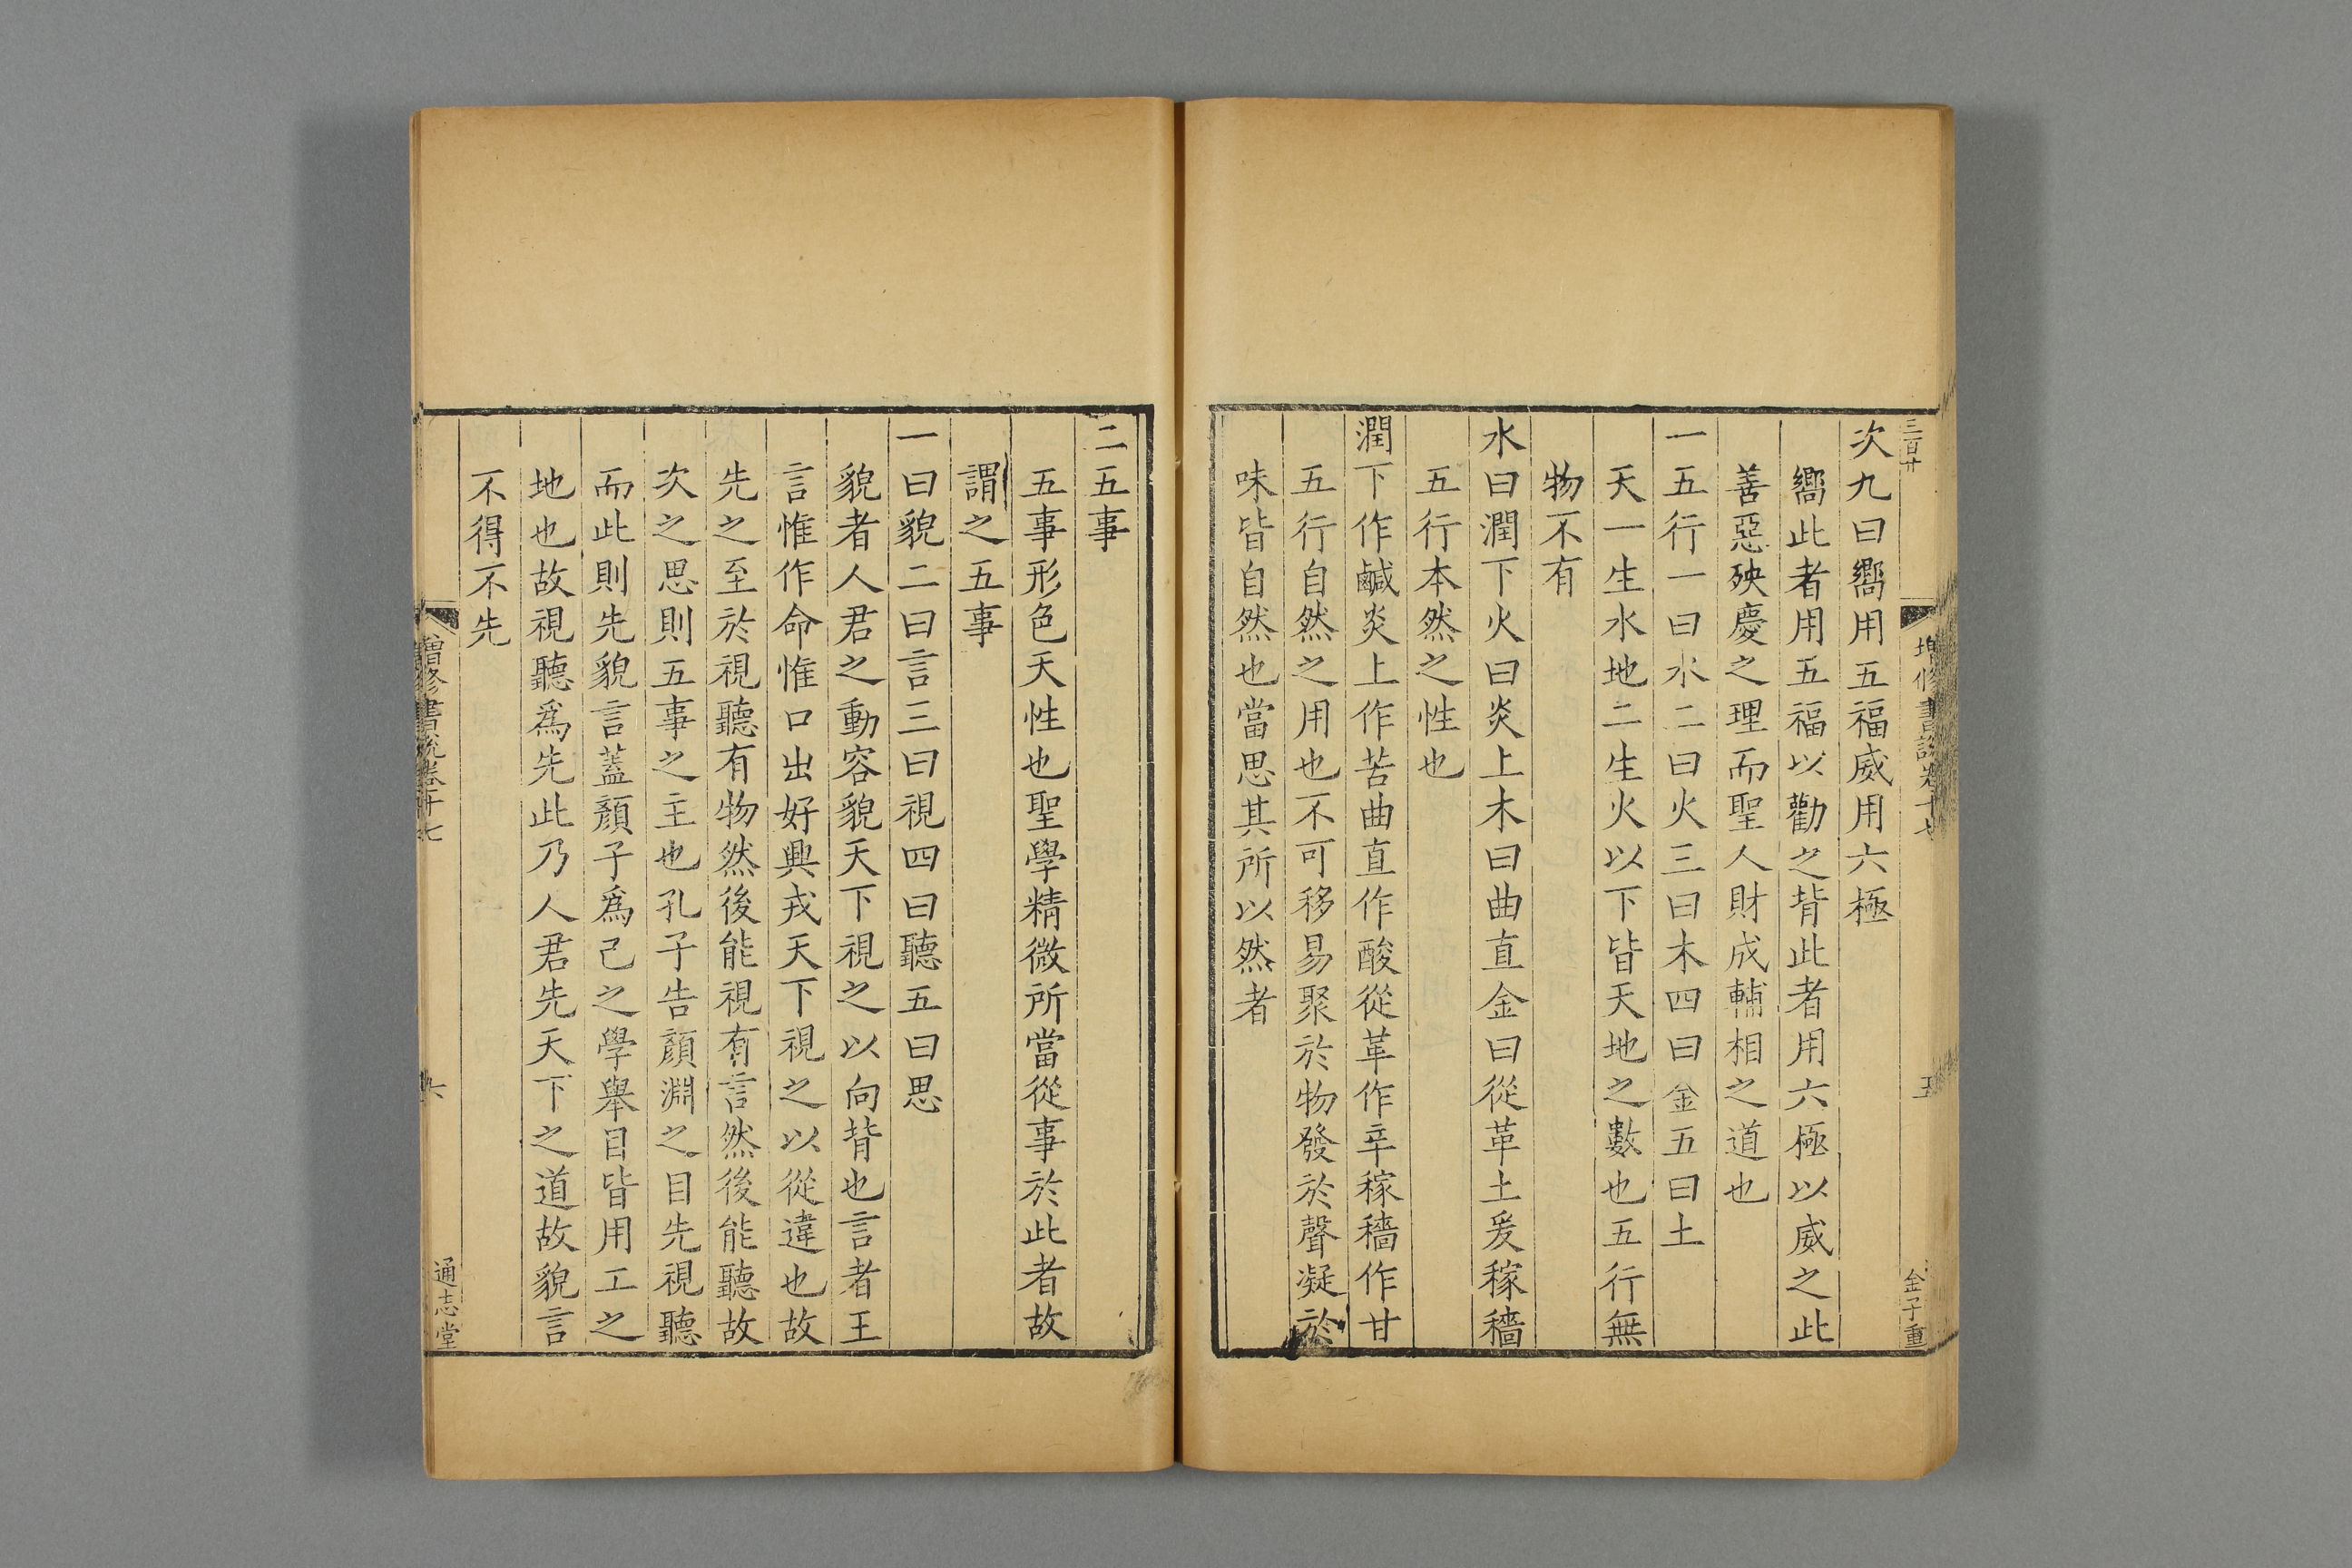 三百廿
增修書說卷十七
五
金子重
次九曰嚮用五福威用六極
嚮此者用五福以勸之背此者用六極以威之此
善惡殃慶之理而聖人財成輔相之道也
一五行一曰水二曰火三曰木四曰金五曰土
天一生水地二生火以下皆天地之數也五行無
物不有
水曰潤下火曰炎上木曰曲直金曰從革土爰稼穡
五行本然之性也
潤下作鹹炎上作苦曲直作酸從革作辛稼穡作甘
五行自然之用也不可移易聚於物發於聲凝於
味皆自然也當思其所以然者
二五事
五事形色天性也聖學精微所當從事於此者故
謂之五事
一曰貌二曰言三曰視四曰聽五曰思
貌者人君之動容貌天下視之以向背也言者王
言惟作命惟口出好興戎天下視之以從違也故
先之至於視聽有物然後能視有言然後能聽故
次之思則五事之主也孔子告顏淵之目先視聽
而此則先貌言蓋顏子爲己之學舉目皆用工之
地也故視聽爲先此乃人君先天下之道故貌言
不得不先
增修書說卷十七
六
通志堂